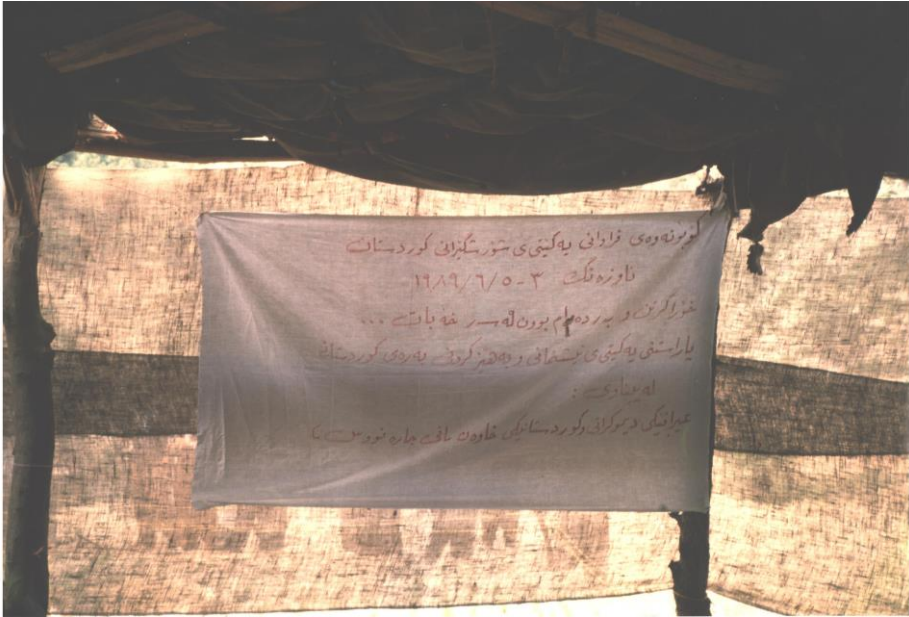 کۆبونەوەی فراوانی یەکێتی ی شۆرشگێرانی کوردستان
ناوزەنگ ٣-١٩٨٩/٦/٥
خۆراگرتن و بەردەوام بوون لەسەر خەبات ...
پاراستنی یەکێتی ی نیشتمانی و بەهێزکردنی بەرەی کوردستانی
لەپێناوی :
عیراقێکی دیموکراتی وکوردستانێکی خاوەن مافی چارە نووس